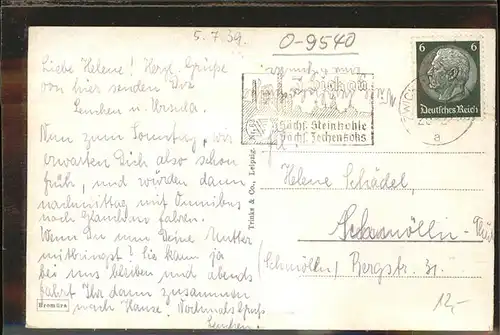 5. 7. 39.
O-9540
Liebe Helene! Herzl. Grüße
von hier senden Dir
Lenchen u. Ursula.
Nun zum Sonntag, wir
erwarten Dich also schon
früh, und würden dann
nachmittag mit Omnibus
nach fahren.
Wenn Du nun Deine Mutter
mitbringst? Sie kann ja
bei uns bleiben und abends
fahrt Ihr dann zusammen
nach Hause. Nochmals Gruß
Lenchen.
Bromüra
Trinks & Co., Leipzig.
Sächs. Steinkohle
Sächs. Zechenkoks
6 6
Deutsches Reich
a
Helene Schädel,
Schmölln-Thür
(Schmölln) Bergstr. 31.
12,-